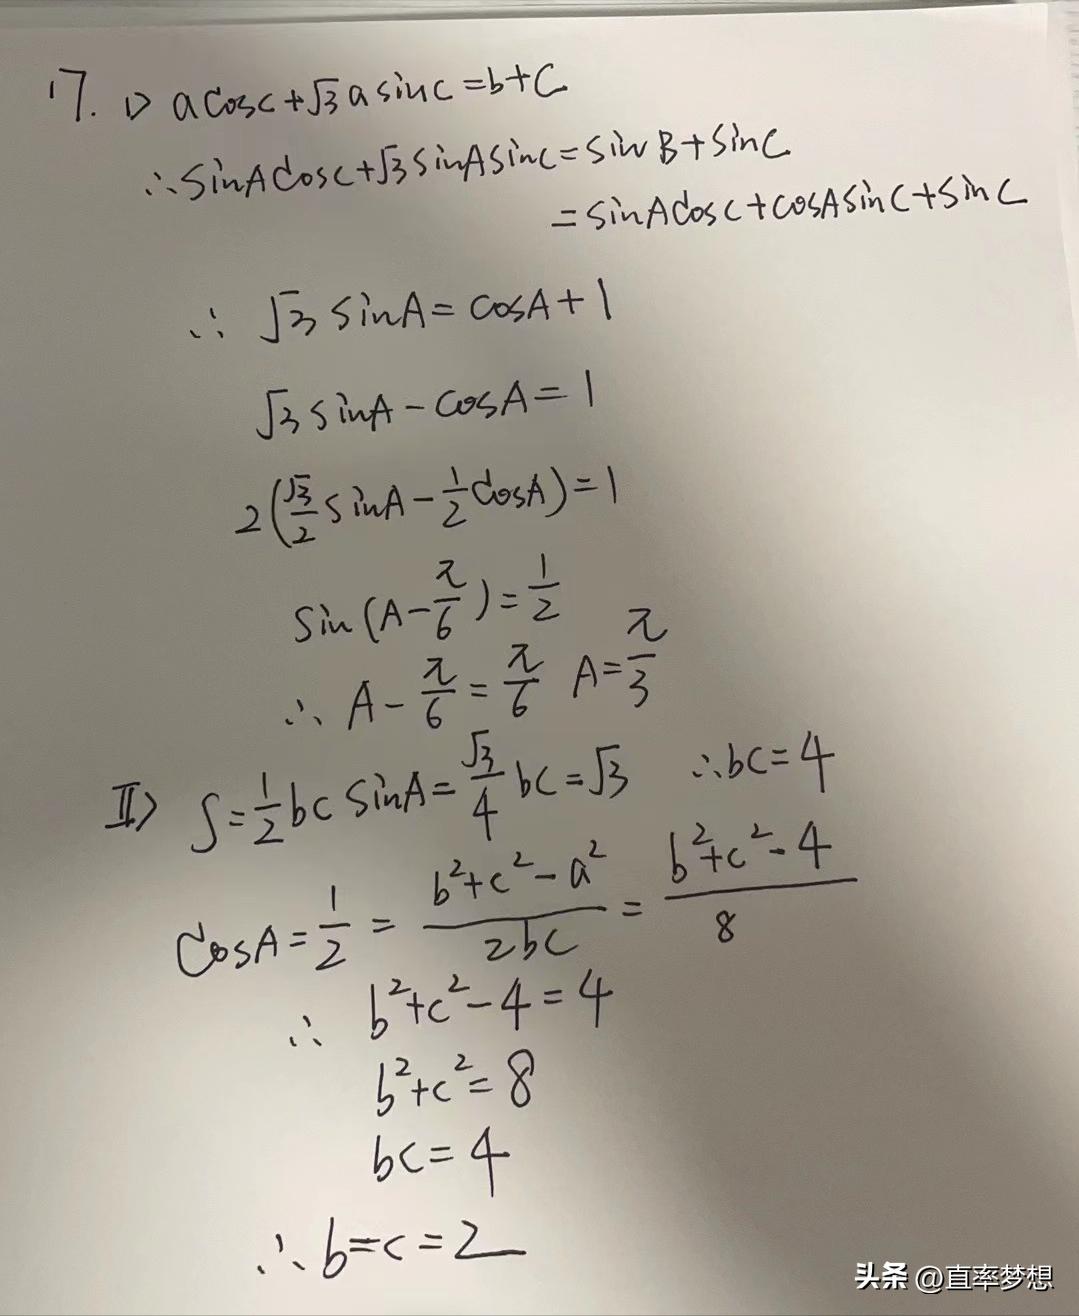 17. I) acosc+√3asinc=b+C
∴sinAcosc+√3sinAsinc=sinB+sinC
=sinAcosc+cosAsinC+sinC
∴ √3sinA=cosA+1
√3sinA-cosA=1
2(√3/2 sinA-1/2 cosA)=1
sin(A-π/6)=1/2
∴ A-π/6=π/6 A=π/3
II) S=1/2 bc sinA=√3/4 bc=√3 ∴bc=4
cosA=1/2=(b²+c²-a²)/2bc=(b²+c²-4)/8
∴ b²+c²-4=4
b²+c²=8
bc=4
∴b=c=2
头条 @直率梦想